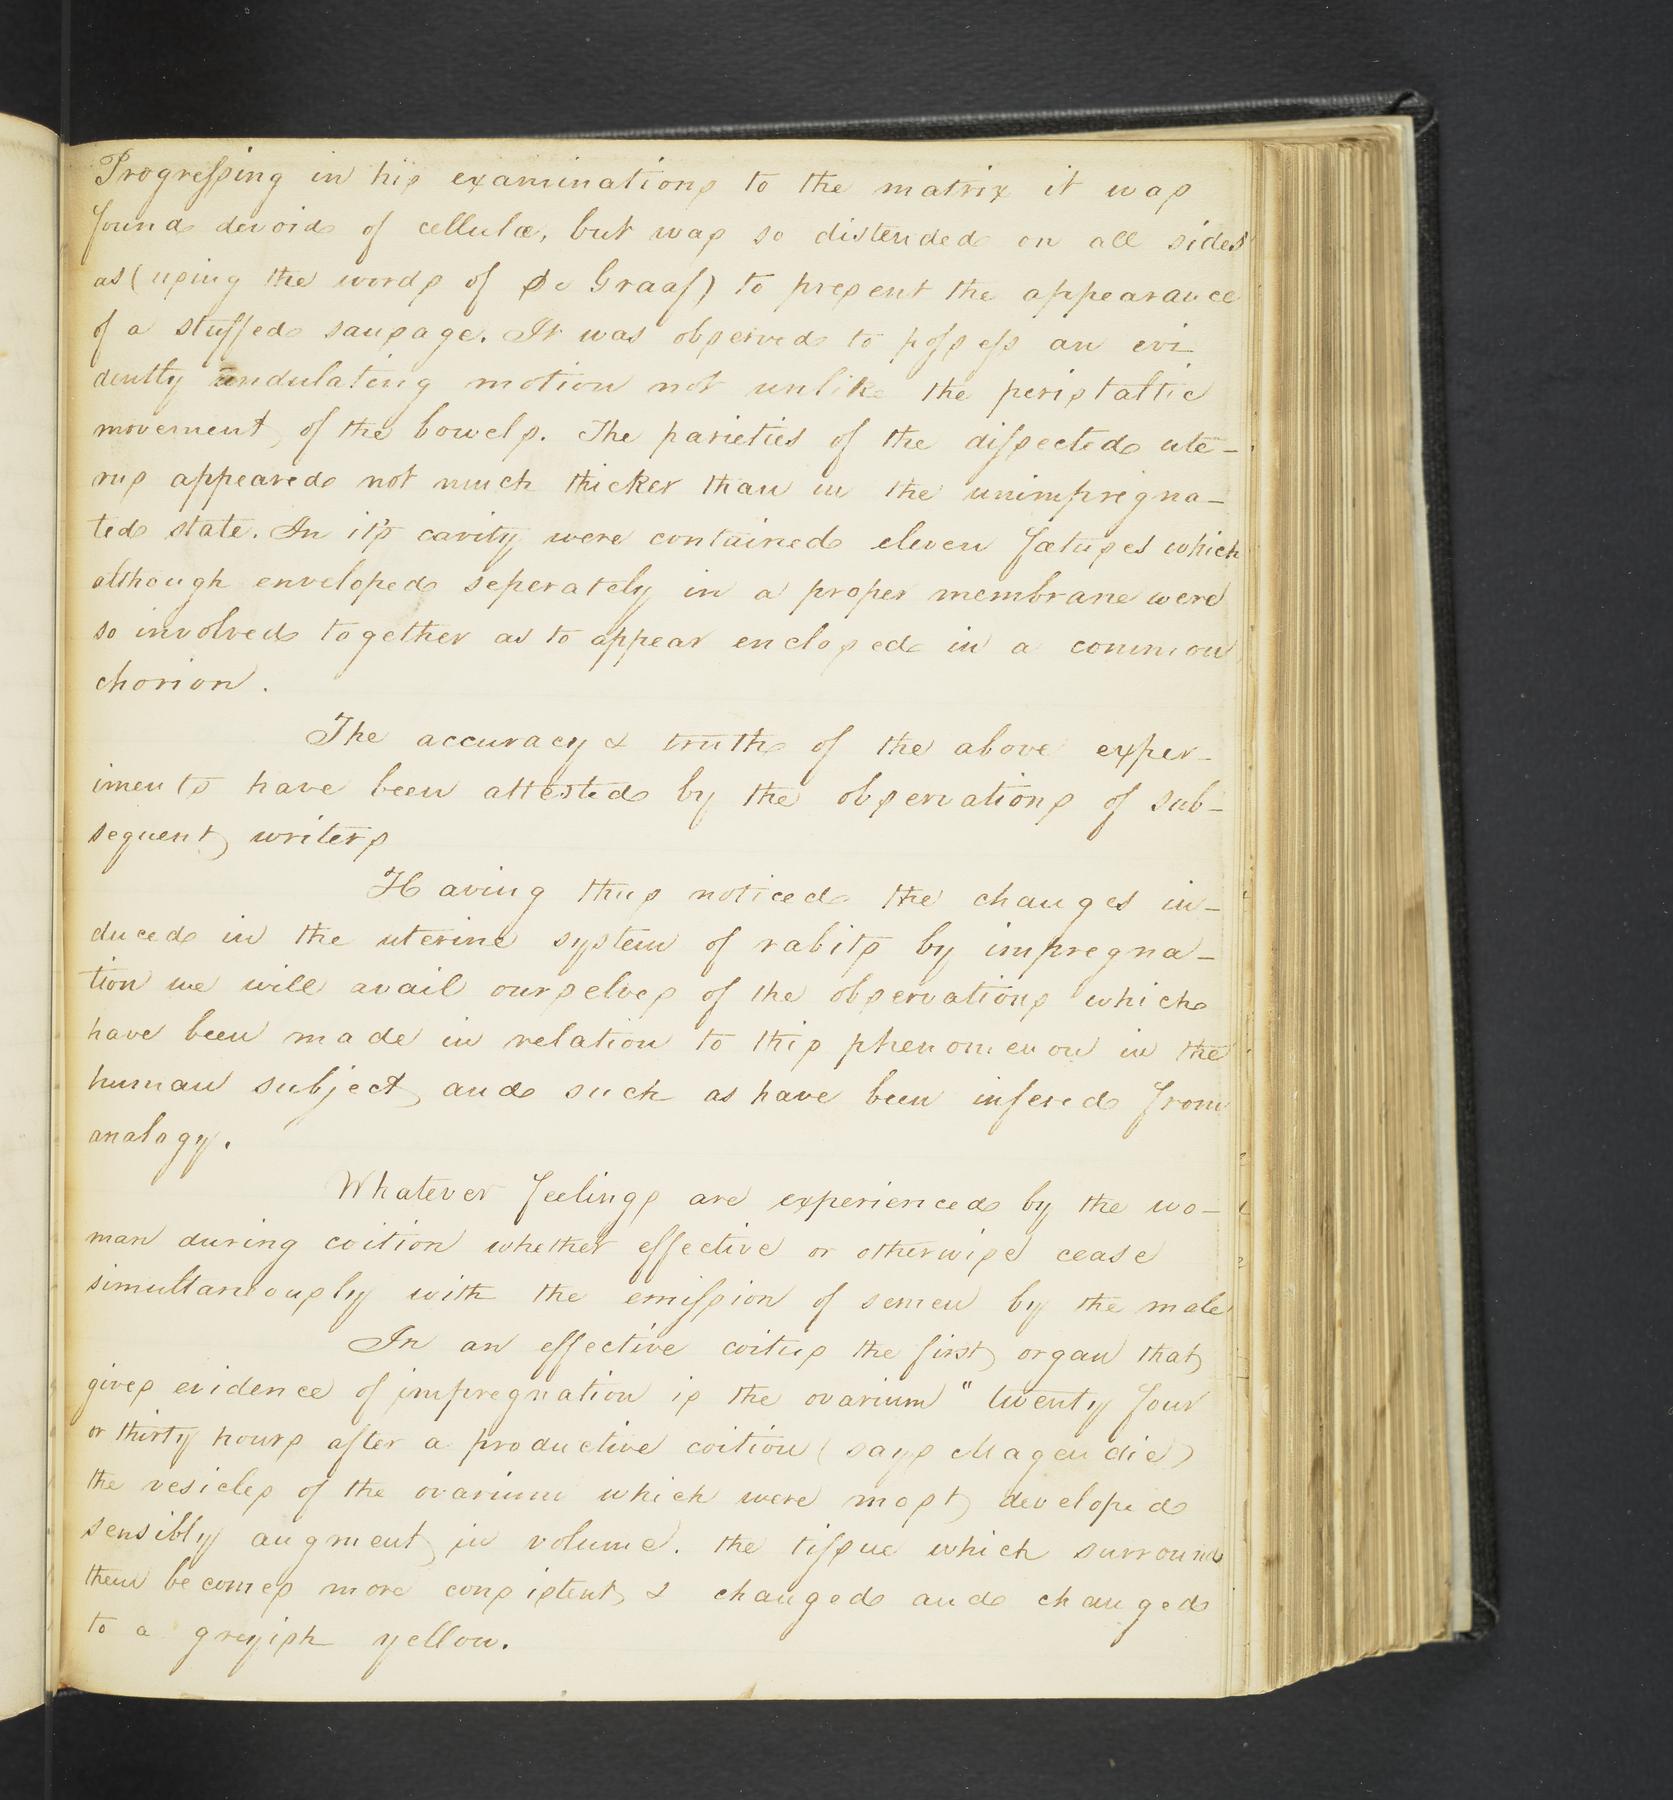 Progressing in his examinations to the matrix it was
found devoid of cellulæ, but was so distended on all sides
as (using the words of De Graaf) to present the appearance
of a stuffed sausage. It was observed to possess an evi
dently undulating motion not unlike the peristaltic
movement of the bowels. The parieties of the dissected ute-
rus appeared not much thicker than in the unimpregna-
ted state. In it's cavity were contained eleven fœtuses which
although enveloped seperately in a proper membrane were
so involved together as to appear enclosed in a common
chorion.
The accuracy & truth of the above exper-
iments have been attested by the observations of sub-
sequent writers
Having thus noticed the changes in-
duced in the uterine system of rabits by impregna-
tion we will avail ourselves of the observations which
have been made in relation to this phenomenon in the
human subject and such as have been infered from
analogy.
Whatever feelings are experienced by the wo-
man during coition whether effective or otherwise cease
simultaneously with the emission of semen by the male
In an effective coitus the first organ that
gives evidence of impregnation is the ovarium "twenty four
or thirty hours after a productive coition (says Magendie)
the vesicles of the ovarium which were most developed
sensibly augment in volume. the tissue which surround
them becomes more consistent & changed and changed
to a greyish yellow.